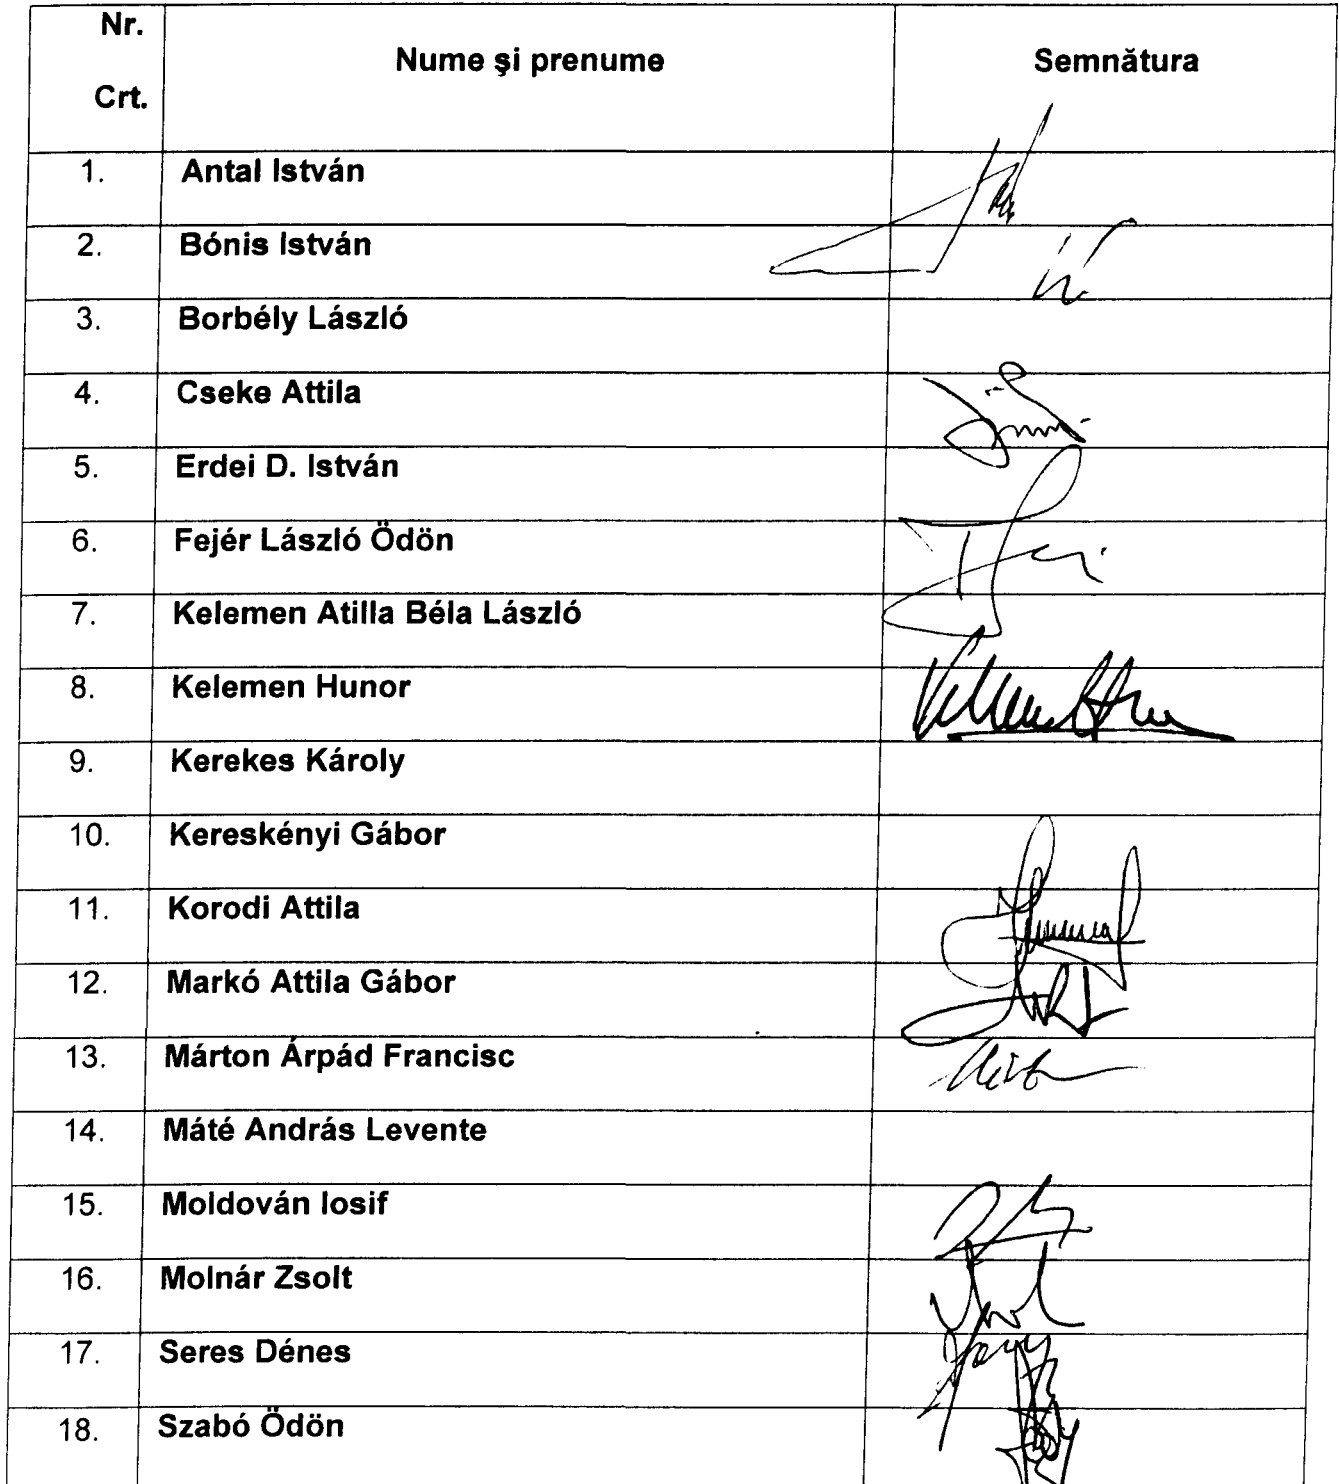 Nr.
Crt.
Nume şi prenume
Semnătura
1. Antal István
2. Bónis István
3. Borbély László
4. Cseke Attila
5. Erdei D. István
6. Fejér László Ödön
7. Kelemen Atilla Béla László
8. Kelemen Hunor
9. Kerekes Károly
10. Kereskényi Gábor
11. Korodi Attila
12. Markó Attila Gábor
13. Márton Árpád Francisc
14. Máté András Levente
15. Moldován Iosif
16. Molnár Zsolt
17. Seres Dénes
18. Szabó Ödön